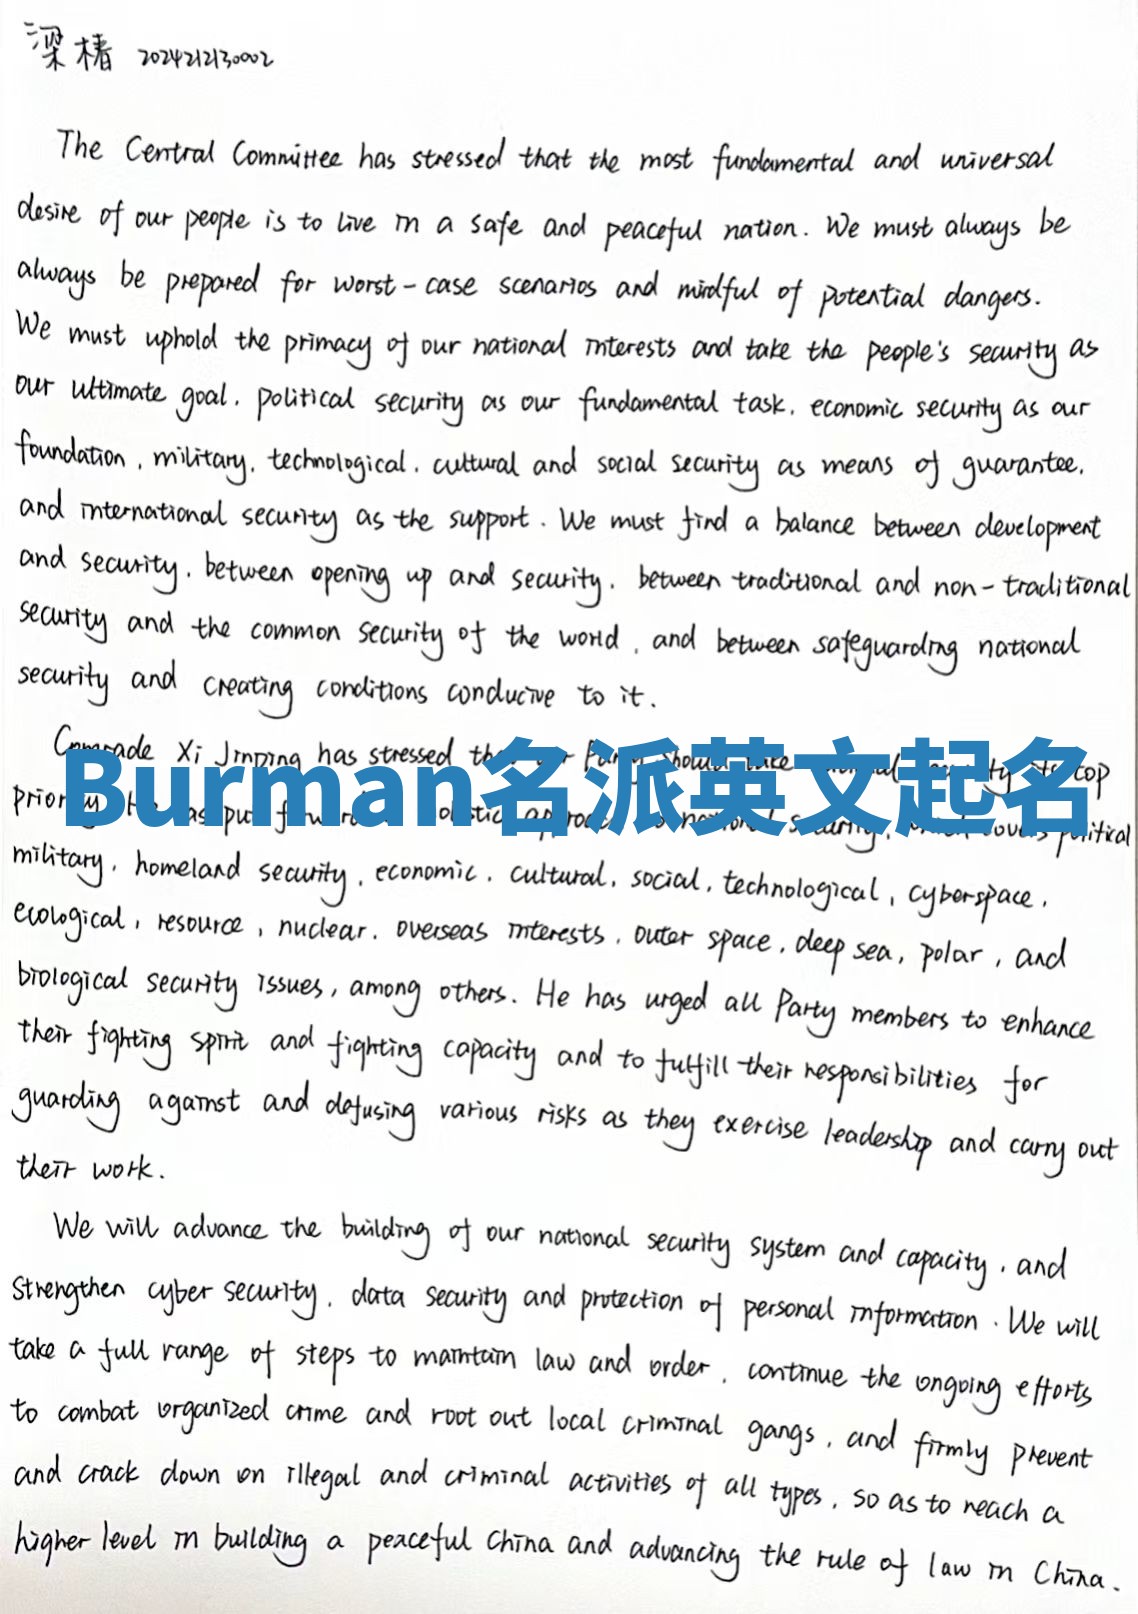 梁椿 2024212130002
The Central Committee has stressed that the most fundamental and universal
desire of our people is to live in a safe and peaceful nation. We must always be
always be prepared for worst-case scenarios and mindful of potential dangers.
We must uphold the primacy of our national interests and take the people's security as
our ultimate goal, political security as our fundamental task, economic security as our
foundation, military, technological, cultural and social security as means of guarantee,
and international security as the support. We must find a balance between development
and security, between opening up and security, between traditional and non-traditional
security and the common security of the world, and between safeguarding national
security and creating conditions conducive to it.
Comrade Xi Jinping has stressed Party should top
Burman名派英文起名
political
military, homeland security, economic, cultural, social, technological, cyberspace,
ecological, resource, nuclear, overseas interests, outer space, deep sea, polar, and
biological security issues, among others. He has urged all Party members to enhance
their fighting spirit and fighting capacity and to fulfill their responsibilities for
guarding against and defusing various risks as they exercise leadership and carry out
their work.
We will advance the building of our national security system and capacity, and
strengthen cyber security, data security and protection of personal information. We will
take a full range of steps to maintain law and order, continue the ongoing efforts
to combat organized crime and root out local criminal gangs, and firmly prevent
and crack down on illegal and criminal activities of all types, so as to reach a
higher level in building a peaceful China and advancing the rule of law in China.